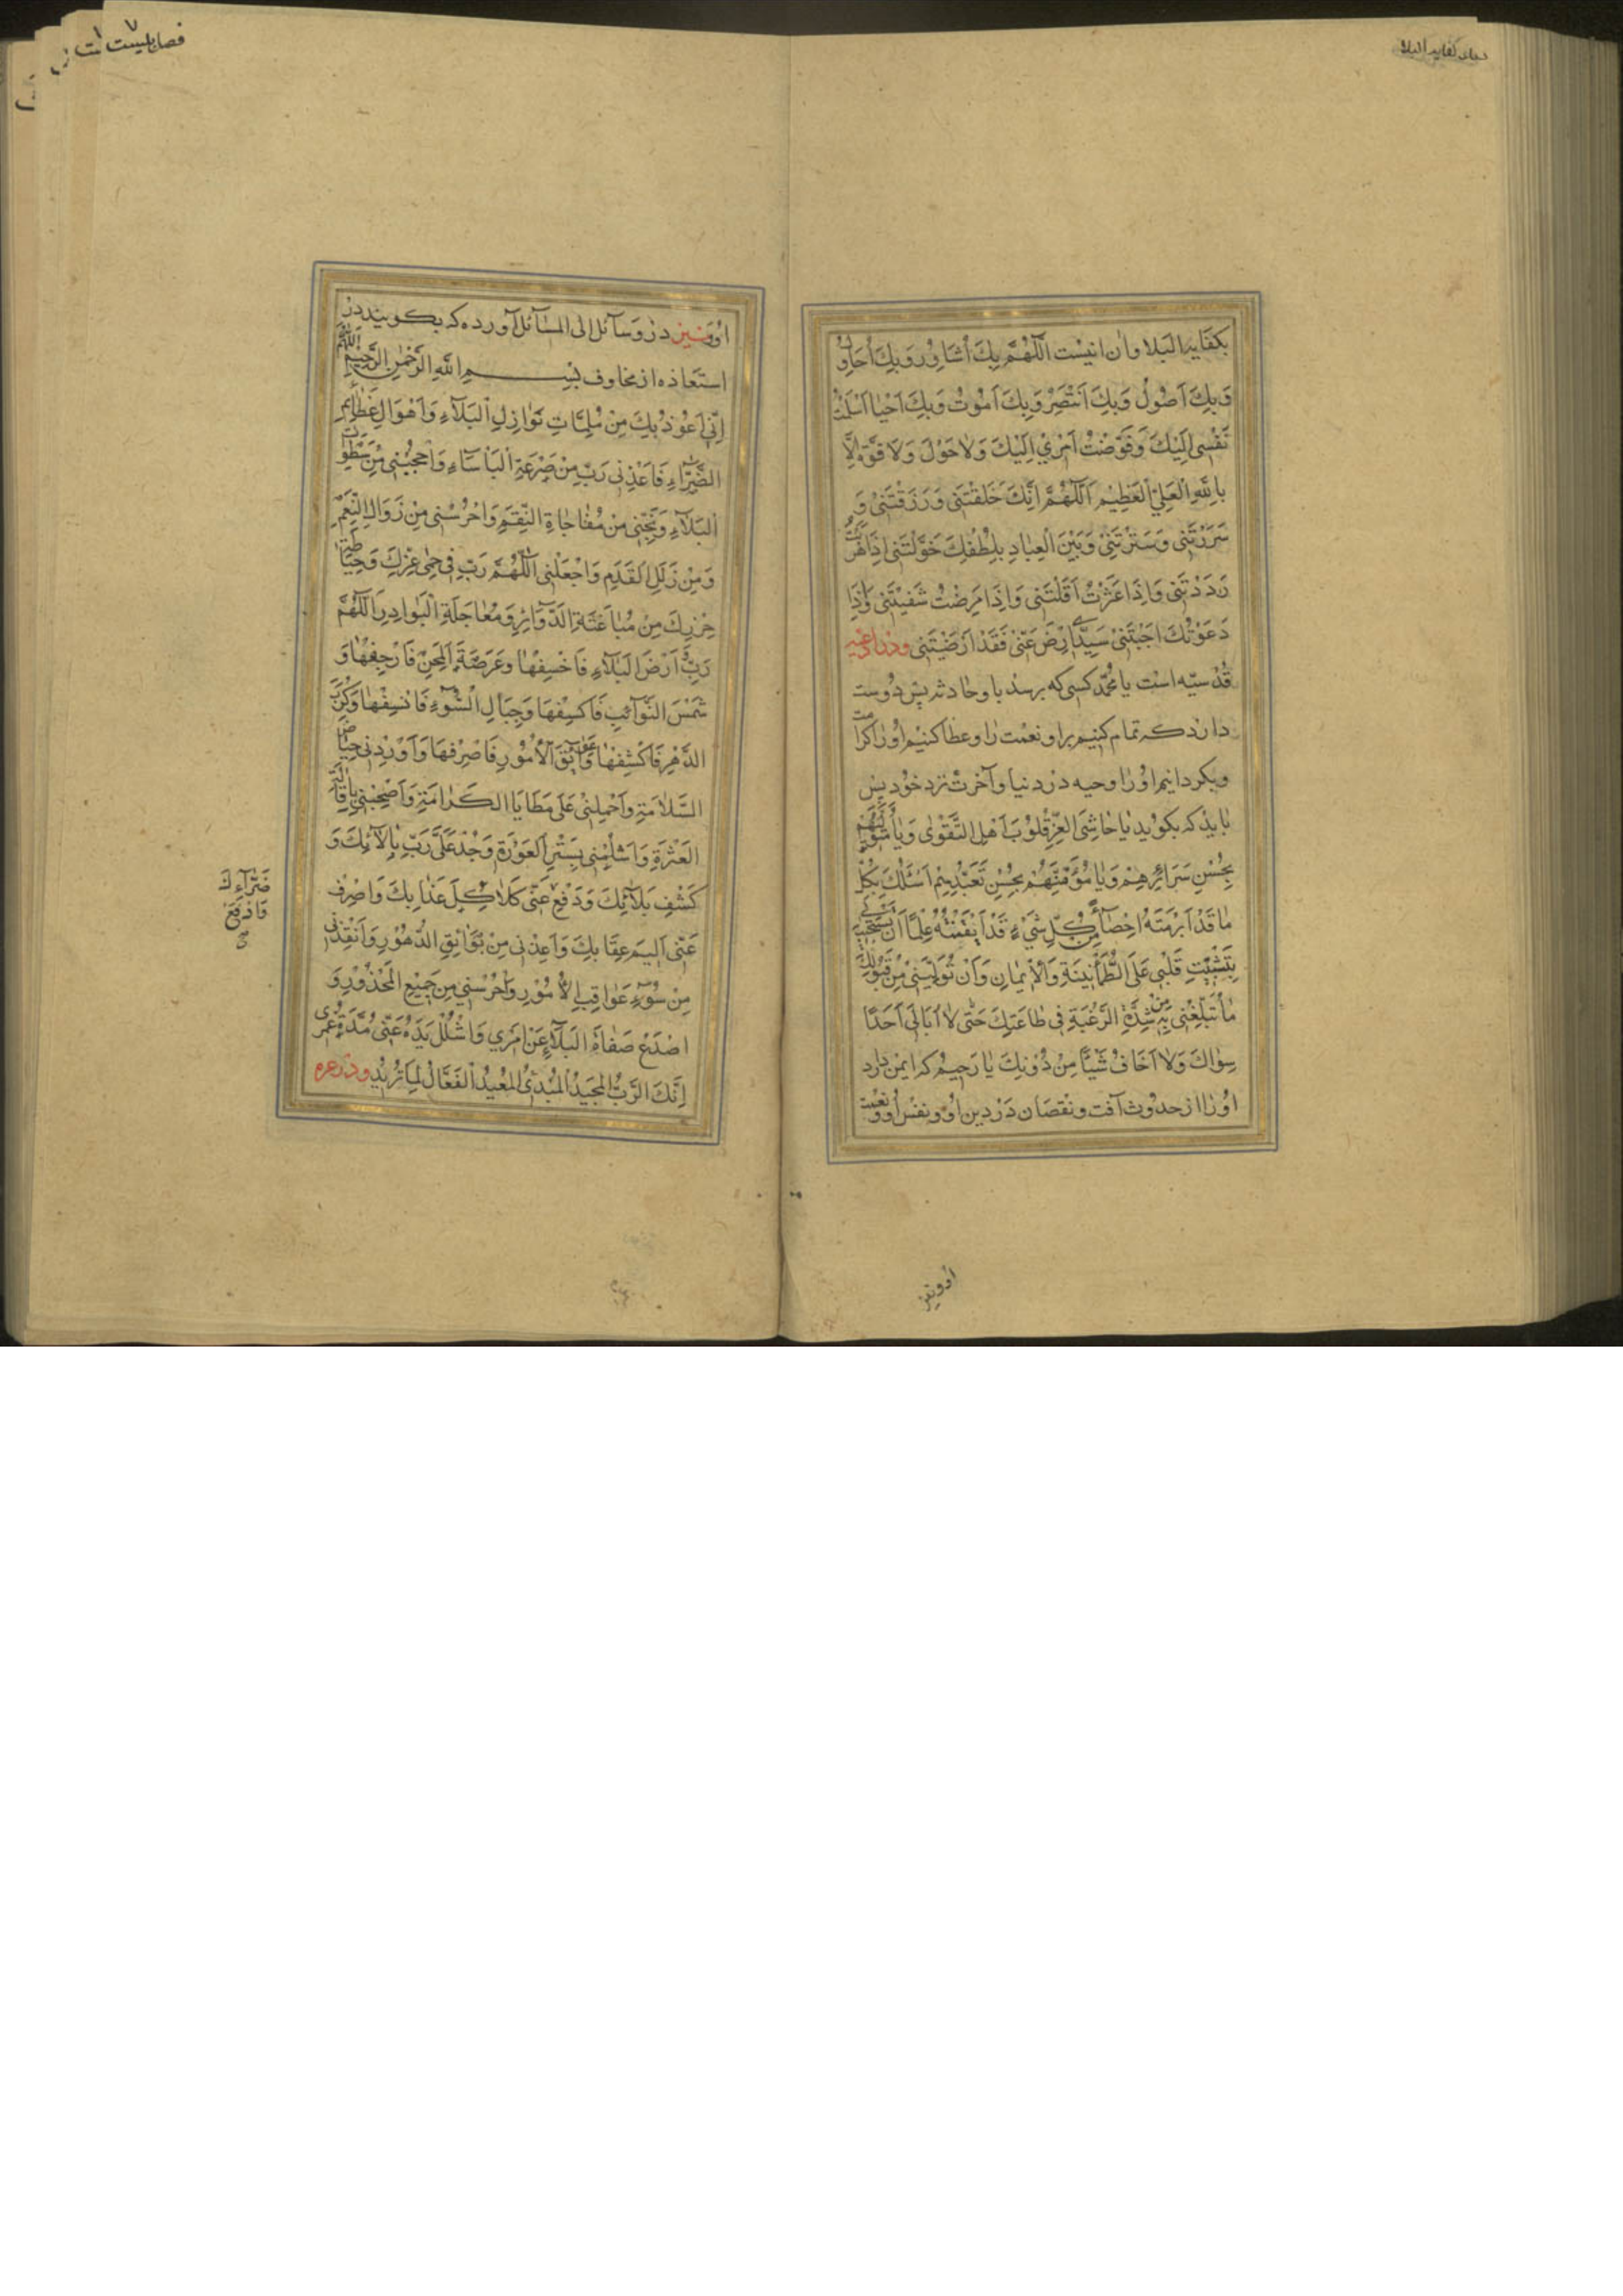 دعاى كفايه البلا
بكفَايه البَلا وان اينست اَللّهُمَّ بِكَ اُسَاوِرُ وَبِكَ اُحَاوِلُ
وَبِكَ اَصُولُ وَبِكَ اَنْتَصِرُ وَبِكَ اَمُوتُ وَبِكَ اَحْيَا اَسْلَمْتُ
نَفْسِى اِلَيْكَ وَفَوَّضْتُ اَمْرِيْ اِلَيْكَ وَلَا حَوْلَ وَلَا قُوَّةَ اِلَّا
بِاللّهِ الْعَلِيِّ الْعَظِيْمِ اَللّهُمَّ اِنَّكَ خَلَقْتَنِى وَرَزَقْتَنِى وَ
سَرَرْتَنِى وَسَتَرْتَنِىْ وَبَيْنَ الْعِبَادِ بِلُطْفِكَ خَوَّلْتَنِى اِذَا هَرَبْتُ
رَدَدْتَنِى وَاِذَا عَثَرْتُ اَقَلْتَنِى وَاِذَا مَرِضْتُ شَفَيْتَنِى وَاِذَا
دَعَوْتُكَ اَجَبْتَنِىْ سَيِّدِى اِرْضَ عَنِّىْ فَقَدْ اَرْضَيْتَنِى ودر ادعيه
قُدْسيّه است يا محمّد كسى كه برسد با و حادثه پس دوست
دارد كه تمام كنيم براو نعمت را و عطا كنيم او را كرامت
وبكردانيم اورا وجيه در دنيا و آخرت نزد خود پس
بايد كه بكويد يَا حَاشِىَ الْعِزِّ قُلُوبَ اَهْلِ التَّقْوٰى وَيَا مُتَوَلِّيَهُمْ
بِحُسْنِ سَرَائِرِهِمْ وَيَا مُؤَمِّنَهُمْ بِحُسْنِ تَعَبُّدِهِمْ اَسْئَلُكَ بِكُلِّ
مَا قَدْ اَبْرَمْتَهُ اِحْصَاءً مِنْ كُلِّ شَيْءٍ قَدْ اَتْقَنْتَهُ عِلْمًا اَنْ تَسْتَجِيْبَ لِىْ
بِتَثْبِيْتِ قَلْبِى عَلَى الطُّمَأْنِيْنَةِ وَالْاِيْمَانِ وَاَنْ تُوَلِّيَنِىْ مِنْ قَبُوْلِكَ
مَا تُبَلِّغُنِى بِهِ مِنْ شِدَّةِ الرَّغْبَةِ فِى طَاعَتِكَ حَتّى لَا اُبَالِىَ اَحَدًا
سِوَاكَ وَلَا اَخَافُ شَيْئًا مِنْ دُوْنِكَ يَا رَحِيْمُ كه ايمن دارد
اورا از حدوث آفت و نقصان در دين او و نفس او و نعمت
او ونيز
او ونيز در وسآئل الى المسآئل آورده كه بكويند در
استعاذه از مخاوف بِسْمِ اللهِ الرَّحْمٰنِ الرَّحِيْمِ اَللّهُمَّ
اِنِّى اَعُوْذُ بِكَ مِنْ مُلِمَّاتِ نَوَازِلِ الْبَلَآءِ وَاَهْوَالِ عَظَائِمِ
الضَّرَّاءِ فَاَعِذْنِى رَبِّ مِنْ صَرْعَةِ الْبَاْسَآءِ وَاحْجُبْنِى مِنْ سَطَوَاتِ
الْبَلَآءِ وَنَجِّنِى مِنْ مُفَاجَاةِ النِّقَمِ وَاحْرُسْنِى مِنْ زَوَالِ النِّعَمِ
وَمِنْ زَلَلِ الْقَدَمِ وَاجْعَلْنِى اَللّهُمَّ رَبِّ فِى حِمٰى عِزِّكَ وَحِيَاطَةِ
حِرْزِكَ مِنْ مُبَاغَتَةِ الدَّوَآئِرِ وَمُعَاجَلَةِ الْبَوَادِرِ اَللّهُمَّ
رَبِّ وَاَرْضَ الْبَلَآءِ فَاخْسِفْهَا وَعَرْصَةَ الْمِحَنِ فَارْجِفْهَا وَ
شَمْسَ النَّوَآئِبِ فَاكْسِفْهَا وَجِبَالَ السُّوْءِ فَانْسِفْهَا وَكُرَبَ
الدَّهْرِ فَاكْشِفْهَا وَعَوَآئِقَ الْاُمُوْرِ فَاصْرِفْهَا وَاَوْرِدْنِى حِيَاضَ
السَّلَامَةِ وَاحْمِلْنِىْ عَلَى مَطَايَا الْكَرَامَةِ وَاصْحَبْنِى بِاِقَالَةِ
الْعَثْرَةِ وَاشْمُلْنِى بِسَتْرِ الْعَوْرَةِ وَجُدْ عَلَىَّ رَبِّ بِاٰلَائِكَ وَ
كَشْفِ بَلَآئِكَ وَدَفْعِ عَنِّى كَلَاكِلَ عَذَابِكَ وَاصْرِفْ
عَنِّى اَلِيْمَ عِقَابِكَ وَاَعِذْنِى مِنْ بَوَائِقِ الدُّهُوْرِ وَاَنْقِذْنِى
مِنْ سُوْءِ عَوَاقِبِ الْاُمُوْرِ وَاحْرُسْنِى مِنْ جَمِيْعِ الْمَحْذُوْرِ وَ
اصْدَعْ صَفَاةَ الْبَلَآءِ عَنْ اَمْرِي وَاشْلُلْ يَدَهُ عَنِّى مُدَّةَ عُمْرِى
اِنَّكَ الرَّبُّ الْمَجِيْدُ الْمُبْدِئُ الْمُعِيْدُ الْفَعَّالُ لِمَا تُرِيْدُ ودر عره
ضَرَّآءِكَ
فَادْفَعْ